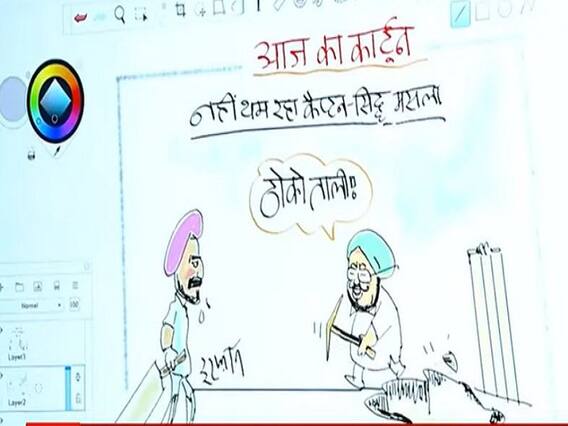 आज का कार्टून
नहीं थम रहा कैप्टन-सिद्धू मसला
ठोको ताली!!
इरफान
Normal
100
Layer3
Layer2